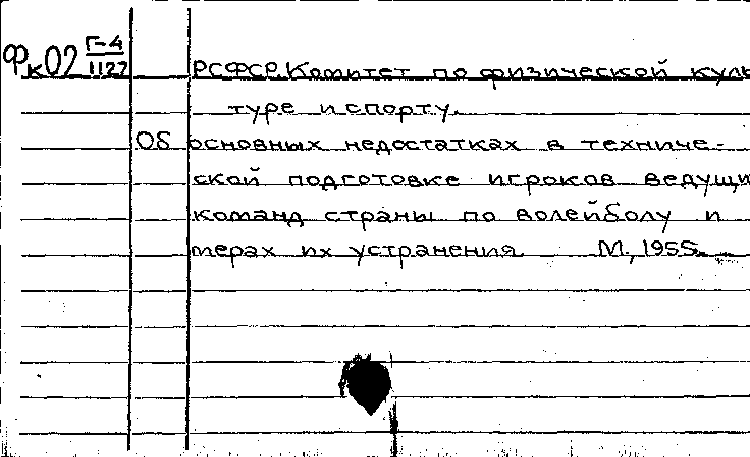 Фк02 Г-4/1127
РСФСР. Комитет по физической куль
туре и спорту.
Об основных недостатках в техниче-
ской подготовке игроков ведущи
команд страны по волейболу и
мерах их устранения. М., 1955.